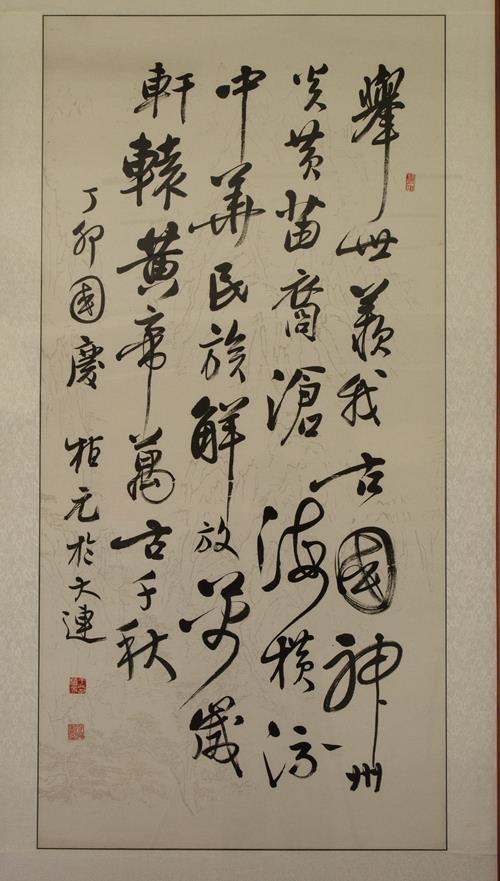 舉世羨我古國神州
炎黃苗裔滄海橫流
中華民族解放萬歲
軒轅黃帝萬古千秋
丁卯國慶 元於大連